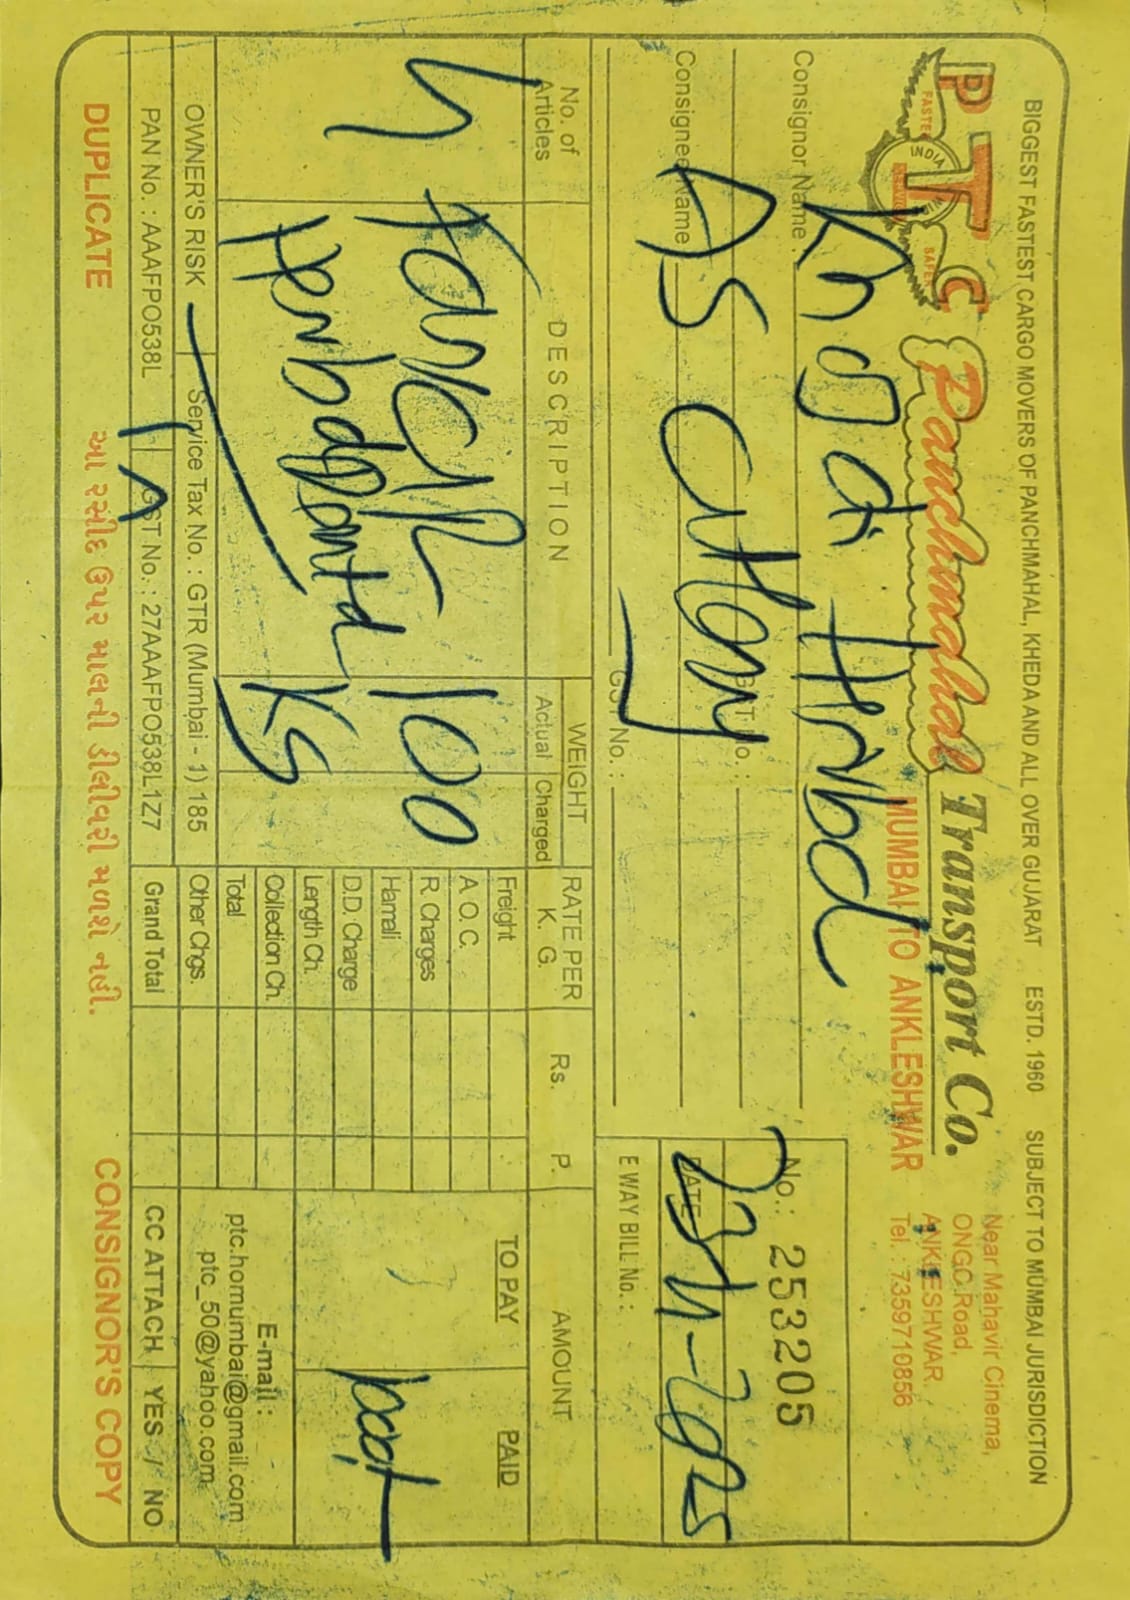 BIGGEST FASTEST CARGO MOVERS OF PANCHMAHAL, KHEDA AND ALL OVER GUJARAT ESTD. 1960 SUBJECT TO MUMBAI JURISDICTION
PTC
FASTER
SAFER
INDIA
Panchmahal Transport Co.
MUMBAI TO ANKLESHWAR
Near Mahavir Cinema,
ONGC Road,
ANKLESHWAR.
Tel. : 7359710856
Consignor Name :
GST No. :
Consignee Name
AS
GST No. :
No.: 253205
DATE
2025
E WAY BILL No. :
No. of Articles
DESCRIPTION
WEIGHT
Actual Charged
RATE PER K. G.
Rs. P.
AMOUNT
TO PAY
PAID
100
KG
Freight
A.O.C.
R. Charges
Hamali
D.D. Charge
Length Ch.
Collection Ch.
Total
Other Chgs.
Grand Total
E-mail :
ptc.homumbai@gmail.com
ptc_50@yahoo.com
OWNER'S RISK
Service Tax No. : GTR (Mumbai - 1) 185
PAN No. : AAAFPO538L
GST No. : 27AAAFPO538L1Z7
CC ATTACH YES / NO
DUPLICATE
આ રસીદ ઉપર માલની ડીલીવરી મળશે નહી.
CONSIGNOR'S COPY